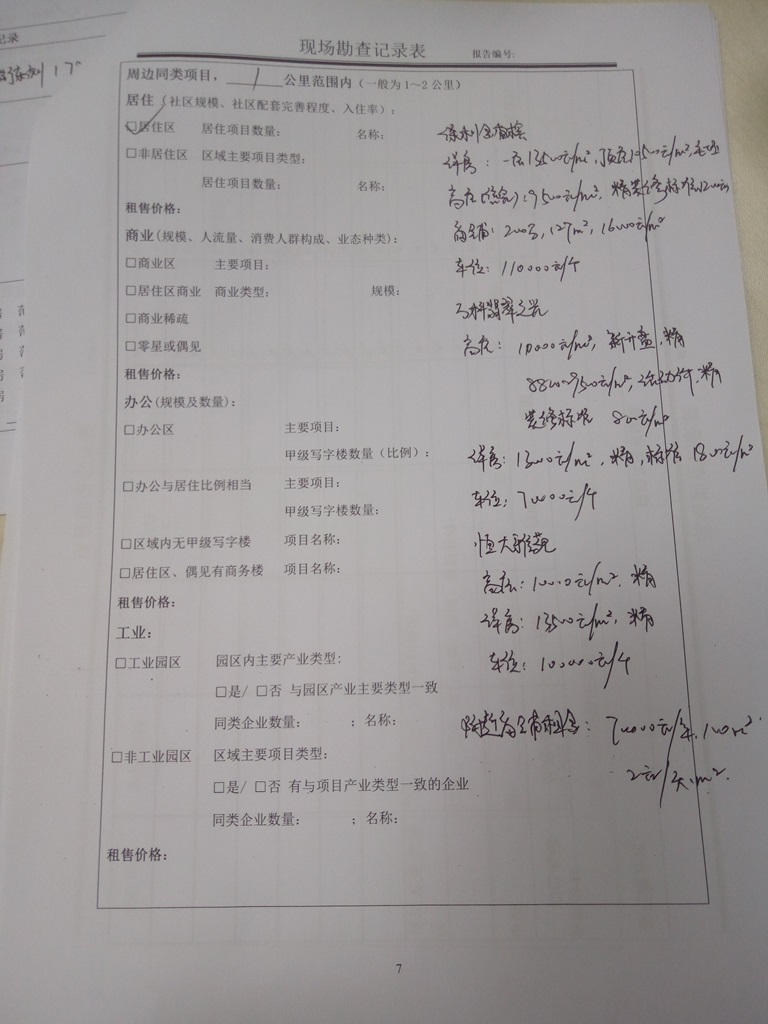 记录
现场勘查记录表 报告编号:
周边同类项目, 1 公里范围内（一般为1～2公里）
居住（社区规模、社区配套完善程度、入住率）:
☑居住区 居住项目数量: 名称: 保利
□非居住区 区域主要项目类型: 洋房: 一层13500元/m², 顶层
居住项目数量: 名称: 高层 9500元/m², 精装修标准1200元
租售价格:
商铺: 200万, 127m², 16000元/m²
商业(规模、人流量、消费人群构成、业态种类):
□商业区 主要项目: 车位: 110000元/个
□居住区商业 商业类型: 规模:
万科翡翠之光
□商业稀疏
□零星或偶见 高层: 10000元/m², 新开盘, 精
租售价格: 8800~9500元/m², 精
办公(规模及数量):
装修标准 800元/m²
□办公区 主要项目:
甲级写字楼数量（比例）: 洋房: 13000元/m², 精, 标准1800元/m²
□办公与居住比例相当 主要项目: 车位: 70000元/个
甲级写字楼数量:
□区域内无甲级写字楼 项目名称: 恒大
□居住区、偶见有商务楼 项目名称: 高层: 10000元/m², 精
租售价格:
洋房: 13500元/m², 精
工业:
□工业园区 园区内主要产业类型: 车位: 100000元/个
□是/ □否 与园区产业主要类型一致
同类企业数量: ; 名称: 附近商铺租金: 70000元/年, 100m²
□非工业园区 区域主要项目类型: 2元/天·m².
□是/ □否 有与项目产业类型一致的企业
同类企业数量: ; 名称:
租售价格:
7